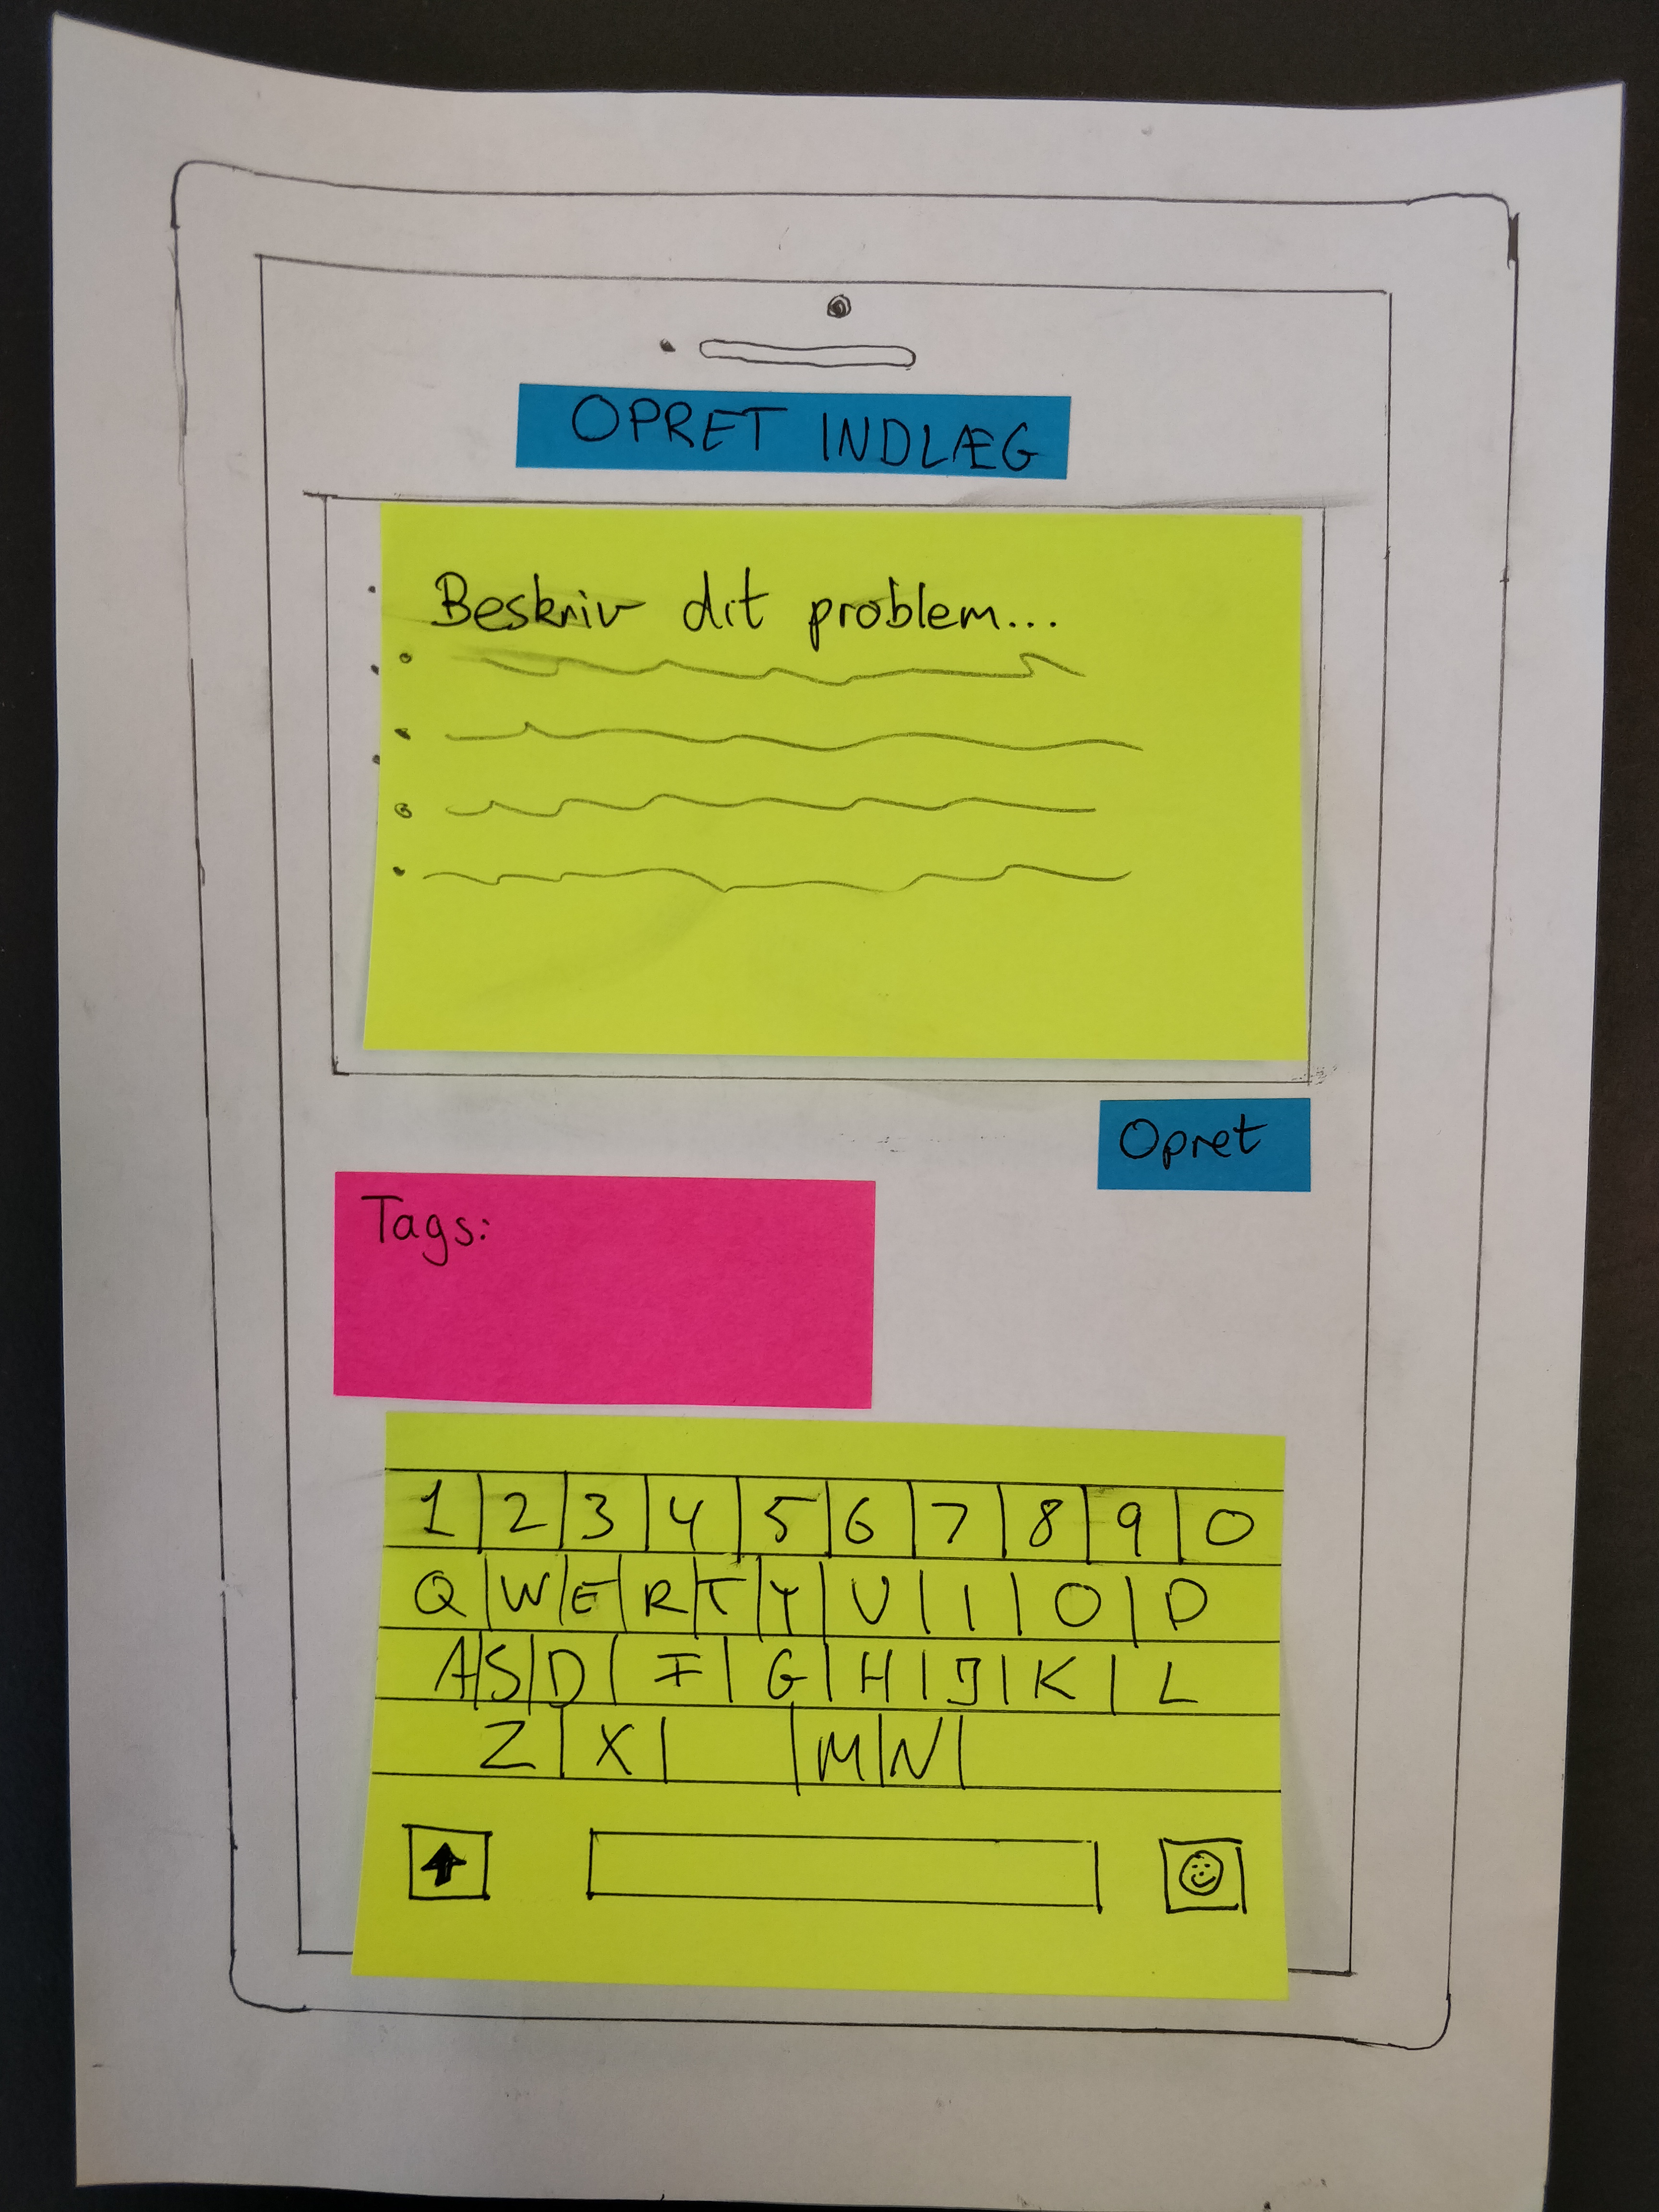 OPRET INDLÆG
Beskriv dit problem...
Opret
Tags:
1 2 3 4 5 6 7 8 9 0
Q W E R T Y U I O P
A S D F G H J K L
Z X M N